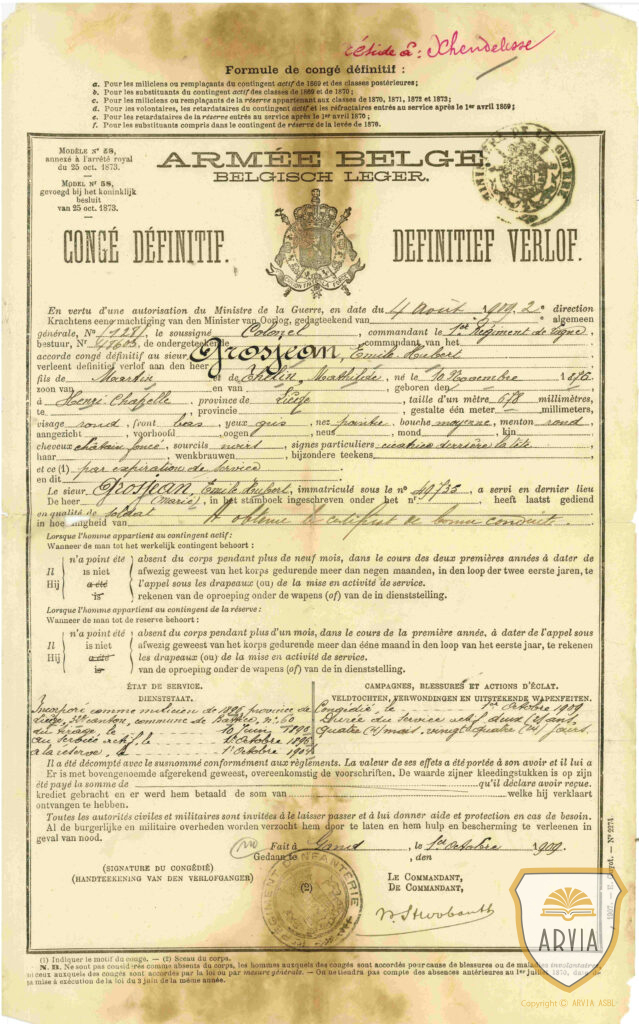 réside à: Xhendelesse
Formule de congé définitif :
a. Pour les miliciens ou remplaçants du contingent actif de 1869 et des classes postérieures ;
b. Pour les substituants du contingent actif des classes de 1869 et de 1870 ;
c. Pour les miliciens ou remplaçants de la réserve appartenant aux classes de 1870, 1871, 1872 et 1873 ;
d. Pour les volontaires, les retardataires du contingent actif et les réfractaires entrés au service après le 1er avril 1869 ;
e. Pour les retardataires de la réserve entrés au service après le 1er avril 1870 ;
f. Pour les substituants compris dans le contingent de réserve de la levée de 1870.
MODÈLE No 58,
annexé à l'arrêté royal
du 25 oct. 1873.
MODEL No 58,
gevoegd bij het koninklijk
besluit
van 25 oct. 1873.
ARMÉE BELGE
BELGISCH LEGER.
MINISTÈRE DE LA GUERRE
CONGÉ DÉFINITIF.
DEFINITIEF VERLOF.
En vertu d'une autorisation du Ministre de la Guerre, en date du 4 Août 1909. 2e direction
Krachtens eene machtiging van den Minister van Oorlog, gedagteekend van algemeen
générale, No le soussigné Colonel, commandant le 1er Régiment de Ligne,
bestuur, No de ondergeteekende commandant van het
accorde congé définitif au sieur Grosjean, Emile Hubert
verleent definitief verlof aan den heer
fils de Martin et de Thelin, Mathilde, né le 10 Novembre 1876
zoon van en van geboren den
à Henri Chapelle province de Liége, taille d'un mètre 678 millimètres,
te provincie gestalte één meter millimeters,
visage rond, front bas, yeux gris, nez pointu, bouche moyenne, menton rond,
aangezicht, voorhoofd, oogen, neus, mond, kin
cheveux châtain foncé, sourcils, signes particuliers cicatrice derrière la tête,
haar, wenkbrauwen, bijzondere teekens
et ce (1) par expiration de service
en dit
Le sieur Grosjean, Emile Hubert, immatriculé sous le no 49735, a servi en dernier lieu
De heer (Marie), in het stamboek ingeschreven onder het nr, heeft laatst gediend
en qualité de soldat A obtenu le certificat de bonne conduite.
in hoedanigheid van
Lorsque l'homme appartient au contingent actif :
Wanneer de man tot het werkelijk contingent behoort :
Il n'a point été absent du corps pendant plus de neuf mois, dans le cours des deux premières années à dater de
Hij is niet afwezig geweest van het korps gedurende meer dan negen maanden, in den loop der twee eerste jaren, te
a été l'appel sous les drapeaux (ou) de la mise en activité de service.
is rekenen van de oproeping onder de wapens (of) van de in dienststelling.
Lorsque l'homme appartient au contingent de la réserve :
Wanneer de man tot de reserve behoort :
Il n'a point été absent du corps pendant plus d'un mois, dans le cours de la première année, à dater de l'appel sous
Hij is niet afwezig geweest van het korps gedurende meer dan ééne maand in den loop van het eerste jaar, te rekenen
a été les drapeaux (ou) de la mise en activité de service.
is van de oproeping onder de wapens (of) van de in dienststelling.
ÉTAT DE SERVICE.
DIENSTSTAAT.
Incorporé comme milicien de 1896 province de
Liége, 32e canton, commune de Battice, no 60
du tirage le 10 Juin 1896
au service actif le 1er Octobre 1896
à la réserve le 1er Octobre 1904
CAMPAGNES, BLESSURES ET ACTIONS D'ÉCLAT.
VELDTOCHTEN, VERWONDINGEN EN UITSTEKENDE WAPENFEITEN.
Congédié le 1er Octobre 1909
Durée du service actif deux (2) ans
quatre (4) mois, vingt-quatre (24) jours.
Il a été décompté avec le susnommé conformément aux règlements. La valeur de ses effets a été portée à son avoir et il lui a
Er is met bovengenoemde afgerekend geweest, overeenkomstig de voorschriften. De waarde zijner kleedingstukken is op zijn
été payé la somme de qu'il déclare avoir reçue.
krediet gebracht en er werd hem betaald de som van welke hij verklaart
ontvangen te hebben.
Toutes les autorités civiles et militaires sont invitées à le laisser passer et à lui donner aide et protection en cas de besoin.
Al de burgerlijke en militaire overheden worden verzocht hem door te laten en hem hulp en bescherming te verleenen in
geval van nood.
Fait à Gand, le 1er Octobre 1909.
Gedaan te, den
(SIGNATURE DU CONGÉDIÉ)
(HANDTEEKENING VAN DEN VERLOFGANGER)
(2)
LE COMMANDANT,
DE COMMANDANT,
RÉGIMENT D'INFANTERIE
No 2274.
ARVIA
Copyright © ARVIA ASBL
(1) Indiquer le motif du congé. — (2) Sceau du corps.
N. B. Ne sont pas considérés comme absents du corps, les hommes auxquels des congés sont accordés pour cause de blessures ou de maladies involontaires,
ni ceux auxquels des congés sont accordés par la loi ou par mesure générale. — On ne tiendra pas compte des absences antérieures au 1er juillet 1870, date de
la mise à exécution de la loi du 3 juin de la même année.